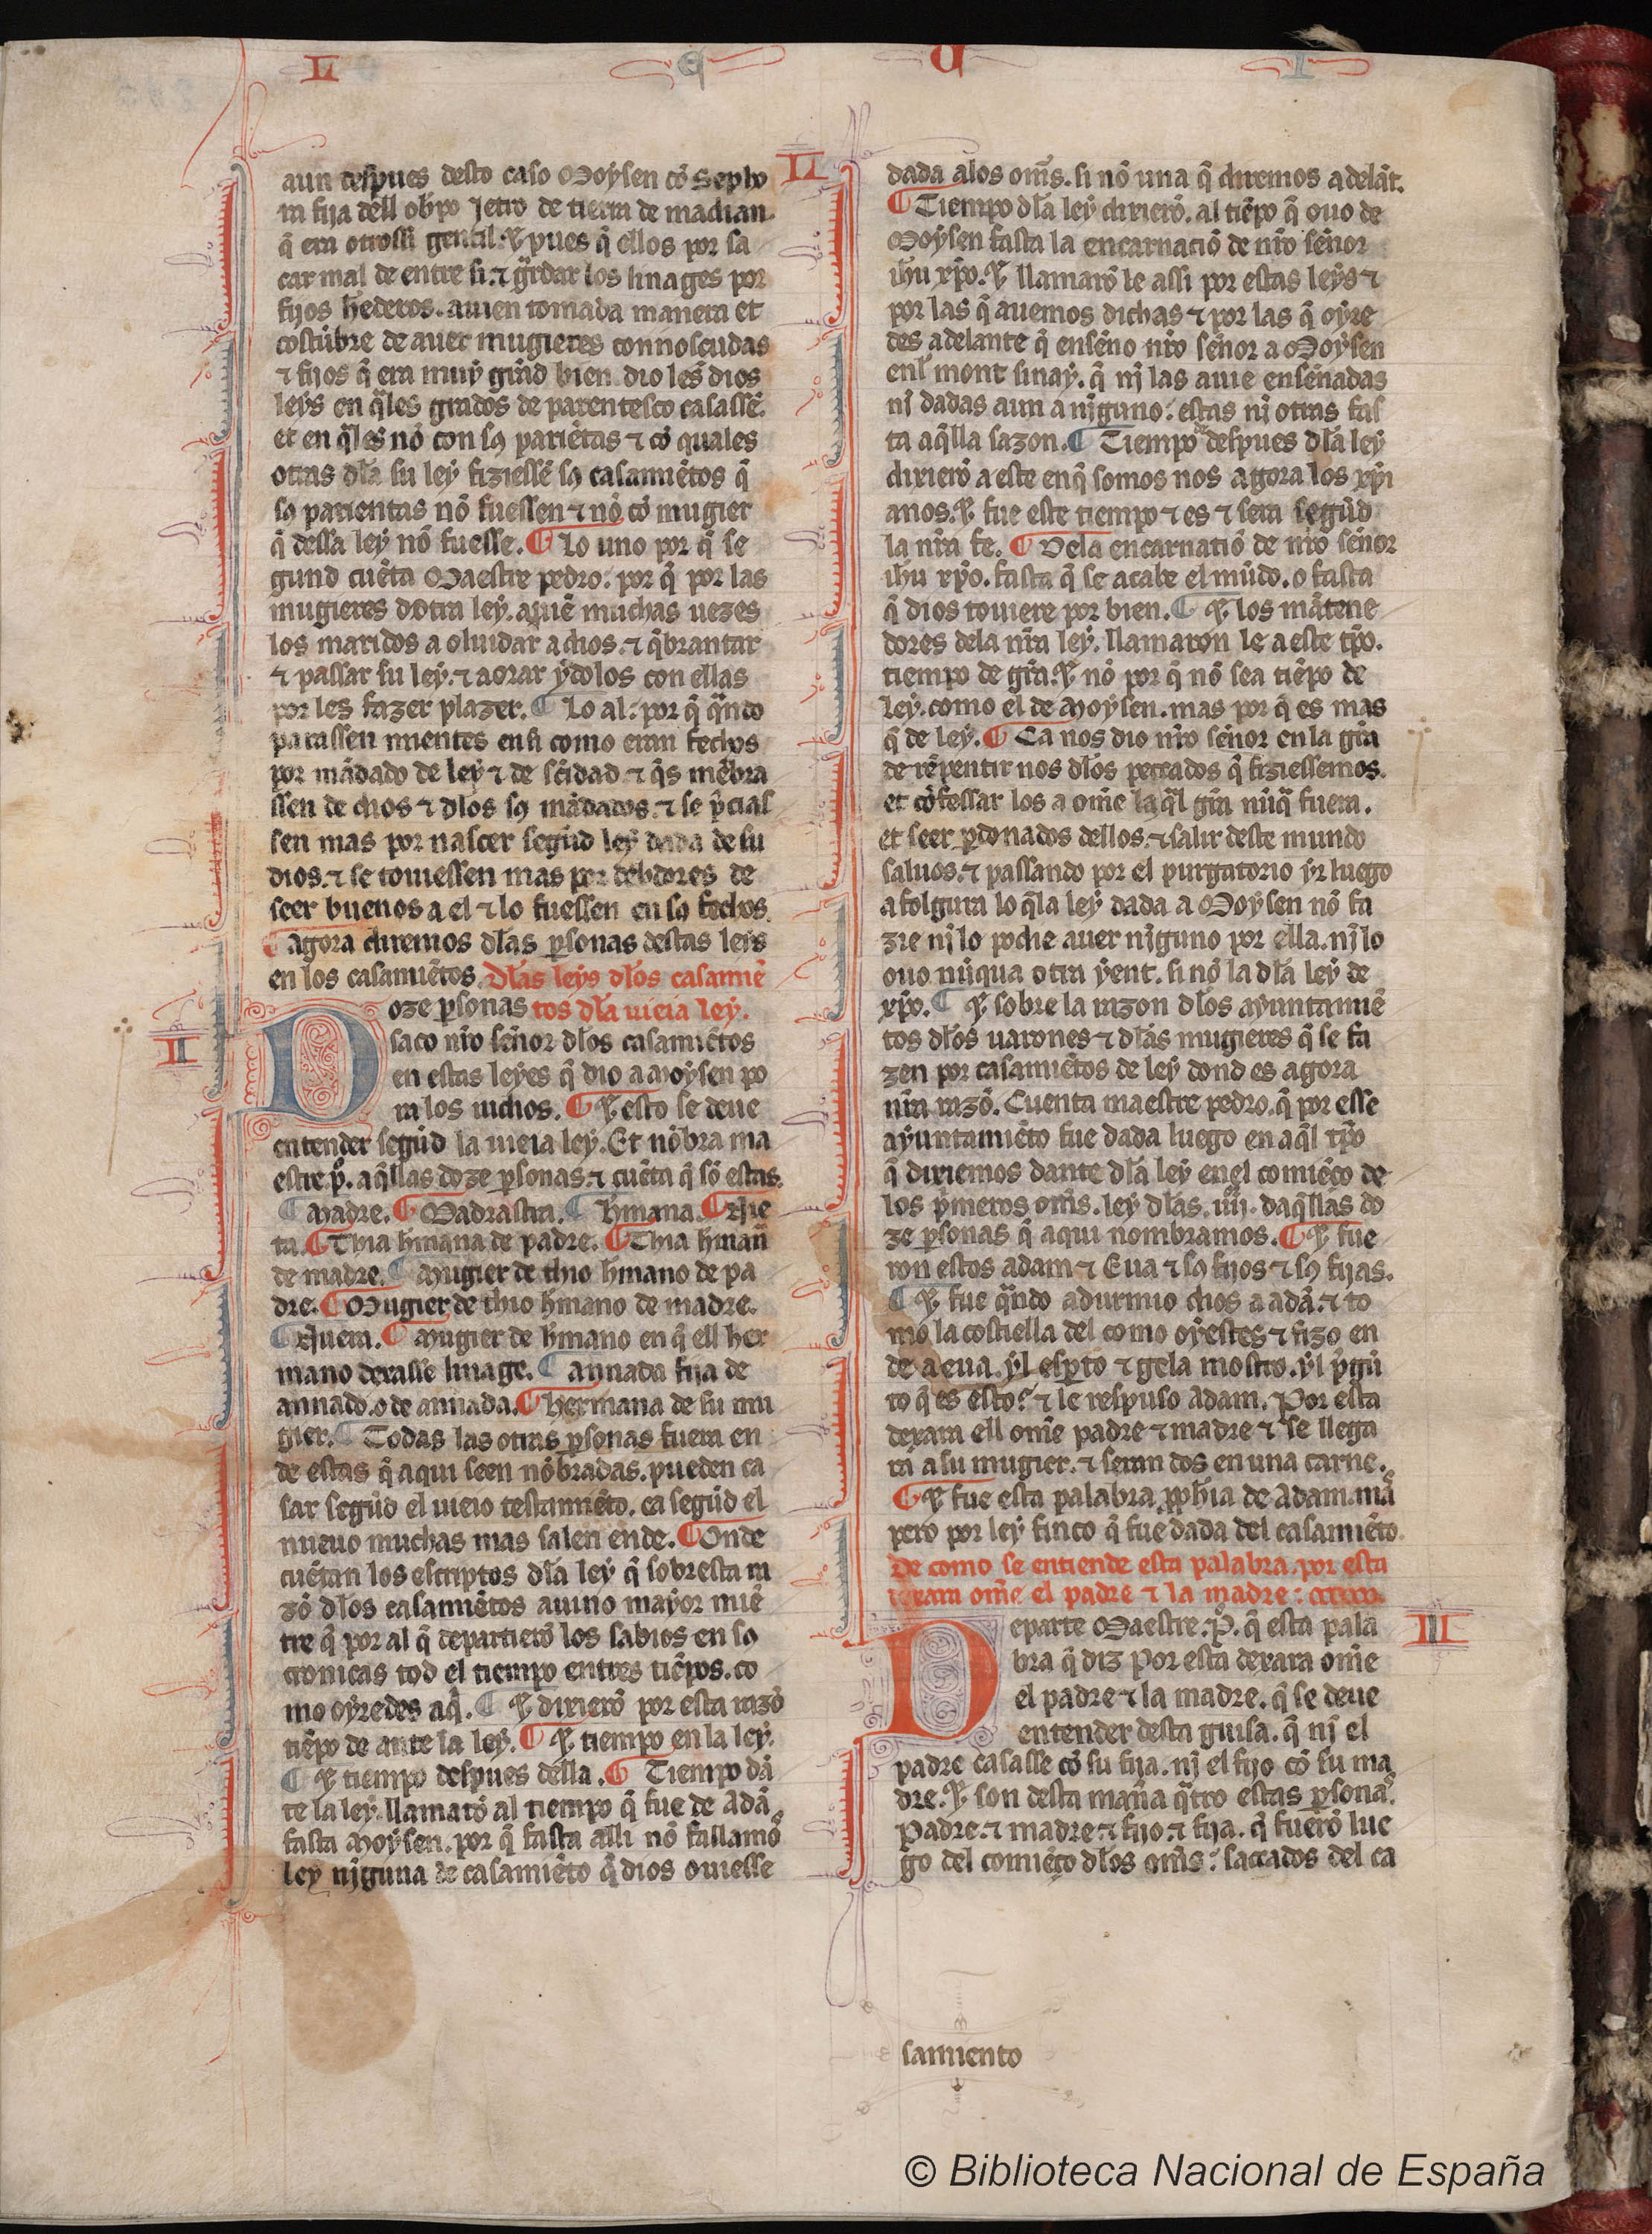 L E U I
aun despues desto caso Moysen cõ Sepho
ra fija dell obpo Jetro de tierra de madian
q̃ era otrossi gentil. ⁊ pues q̃ ellos por sa
car mal de entre si. ⁊ g̃rdar los linages por
fijos hederos. auien tomada manera et
costũbre de auer mugieres connosçudas
⁊ fijos q̃ era muy grãd bien. dio les dios
leys en q̃les grados de parentesco casassẽ.
et en q̃les nõ con sꝯ pariẽtas ⁊ cõ quales
otras dl̃a su ley fiziessẽ sꝯ casamiẽtos q̃
sꝯ parientas nõ fuessen ⁊ nõ cõ mugier
q̃ dessa ley nõ fuesse. ¶ Lo uno por q̃ se
gund cuẽta Maestre pedro. por q̃ por las
mugieres dotra ley. auiẽ muchas uezes
los maridos a oluidar a dios. ⁊ q̃brantar
⁊ passar su ley. ⁊ aorar ydolos con ellas
por les fazer plazer. ¶ Lo al. por q̃ q̃ndo
parassen mientes en si como eran fechos
por mãdado de ley ⁊ de sc̃idad. ⁊ q̃s mẽbra
ssen de dios ⁊ dlos sꝯ mãdados. ⁊ se p̃cias
sen mas por nasçer segũd ley dada de su
dios. ⁊ se touiessen mas por debdores de
seer buenos a el ⁊ lo fuessen en sꝯ fechos.
¶ agora diremos dl̃as p̲sonas destas leys
en los casamiẽtos. Dl̃as leys dl̃os casamiẽ
tos dl̃a uieia ley.
II
Doze p̲sonas
saco nr̃o señor dl̃os casamiẽtos
en estas leyes q̃ dio a Moysen po
ra los iudios. ¶ ⁊ esto se deue
entender segũd la uieia ley. Et nõbra ma
estre p̊. aq̃llas doze p̲sonas. ⁊ cuẽta q̃ sõ estas.
¶ Madre. ¶ Madrastra. ¶ hm̃ana. ¶ Nie
ta. ¶ Thia hm̃ana de padre. ¶ Thia hm̃an̄
de madre. ¶ Mugier de thio hm̃ano de pa
dre. ¶ Mugier de thio hm̃ano de madre.
¶ Nuera. ¶ Mugier de hm̃ano en q̃ ell her
mano dexasse linage. ¶ annada fija de
annado. o de annada. ¶ hermana de su mu
gier. ¶ Todas las otras p̲sonas fuera en
de estas q̃ aqui seen nõbradas. pueden ca
sar segũd el uieio testamẽto. ca segũd el
nueuo muchas mas salen ende. ¶ Onde
cuẽtan los escriptos dl̃a ley q̃ sobresta ra
zõ dl̃os casamiẽtos auino mayor miẽ
tre q̃ por al q̃ departierõ los sabios en sꝯ
cronicas tod el tiempo entres tiẽpos. co
mo oyredes aq̃. ¶ ⁊ dixierõ por esta razõ
tiẽpo de ante la ley. ¶ ⁊ tiempo en la ley.
¶ ⁊ tiempo despues della. ¶ Tiempo dã
te la ley. llamarõ al tiempo q̃ fue de Adã
fasta Moysen. por q̃ fasta alli nõ fallamos
ley nĩguna de casamiẽto q̃ dios ouiesse
LI
dada alos om̃s. si nõ una q̃ diremos adelãt.
¶ Tiempo dl̃a ley dixierõ. al tiẽpo q̃ ouo de
Moysen fasta la encarnaciõ de nr̃o señor
ih̃u xp̃o. ⁊ llamarõ le assi por estas leys ⁊
por las q̃ auemos dichas ⁊ por las q̃ oyre
des adelante q̃ enseño nr̃o señor a Moysen
enl̃ mont sinay. q̃ nj̃ las auie enseñadas
nĩ dadas aun a nĩguno. estas nĩ otras fas
ta aq̃lla sazon. ¶ Tiempo despues dl̃a ley
dixierõ a este en q̃ somos nos agora los xp̃i
anos. ⁊ fue este tiempo ⁊ es ⁊ sera segũd
la nr̃a fe. ¶ Dela encarnatiõ de nr̃o señor
ih̃u xp̃o. fasta q̃ se acabe el mũdo. o fasta
q̃ dios touiere por bien. ¶ ⁊ los mãtene
dores dela nr̃a ley. llamaron le a este tp̃o.
tiempo de gr̃a. ⁊ nõ por q̃ nõ sea tiẽpo de
ley. como el de Moysen. mas por q̃ es mas
q̃ de ley. ¶ Ca nos dio nr̃o señor en la gr̃a
de rẽpentir nos dl̃os peccados q̃ fiziessemos.
et cõfessar los a om̃e la q̃l gr̃a nũq̃ fuera.
et seer p̲donados dellos. ⁊ salir deste mundo
saluos. ⁊ passando por el purgatorio yr luego
a folgura lo q̃la ley dada a Moysen nõ fa
zie nĩ lo podie auer nĩguno por ella. nĩ lo
ouo nũqua otra yent. si nõ la dl̃a ley de
xp̃o. ¶ ⁊ sobre la razon dl̃os ayuntamiẽ
tos dl̃os uarones ⁊ dl̃as mugieres q̃ se fa
zen por casamiẽtos de ley dond es agora
nr̃a razõ. Cuenta maestre pedro. q̃ por esse
ayuntamiẽto fue dada luego en aq̃l tp̃o
q̃ dixiemos dante dl̃a ley enel comiẽço de
los p̃meros om̃s. ley dl̃as. iiij. daq̃llas do
ze p̲sonas q̃ aqui nombramos. ¶ ⁊ fue
ron estos adam ⁊ Eua ⁊ sꝯ fijos ⁊ sꝯ fijas.
¶ ⁊ fue q̃ndo adurmio dios a adã. ⁊ to
mo la costiella del como oyestes ⁊ fizo en
de a eua. yl esp̲to ⁊ gela mostro. yl p̃gũ
to q̃ es esto? ⁊ le respuso Adam. Por esta
dexara ell om̃e padre ⁊ madre ⁊ se llega
ra a su mugier. ⁊ seran dos en una carne.
¶ ⁊ fue esta palabra p̱ph̃ia de Adam. mas
pero por ley finco q̃ fue dada del casamiẽto.
De como se entiende esta palabra. por esta
dexara om̃e el padre ⁊ la madre:
III
Departe Maestre. P̊. q̃ esta pala
bra q̃ diz Por esta dexara om̃e
el padre ⁊ la madre. q̃ se deue
entender desta guisa. q̃ nĩ el
padre casasse cõ su fija. nĩ el fijo cõ su ma
dre. ⁊ son desta mañ̃a q̃tro estas p̲sonas.
Padre. ⁊ madre. ⁊ fijo. ⁊ fija. q̃ fuerõ lue
go del comiẽço dl̃os om̃s. saccados del ca
samiento
© Biblioteca Nacional de España